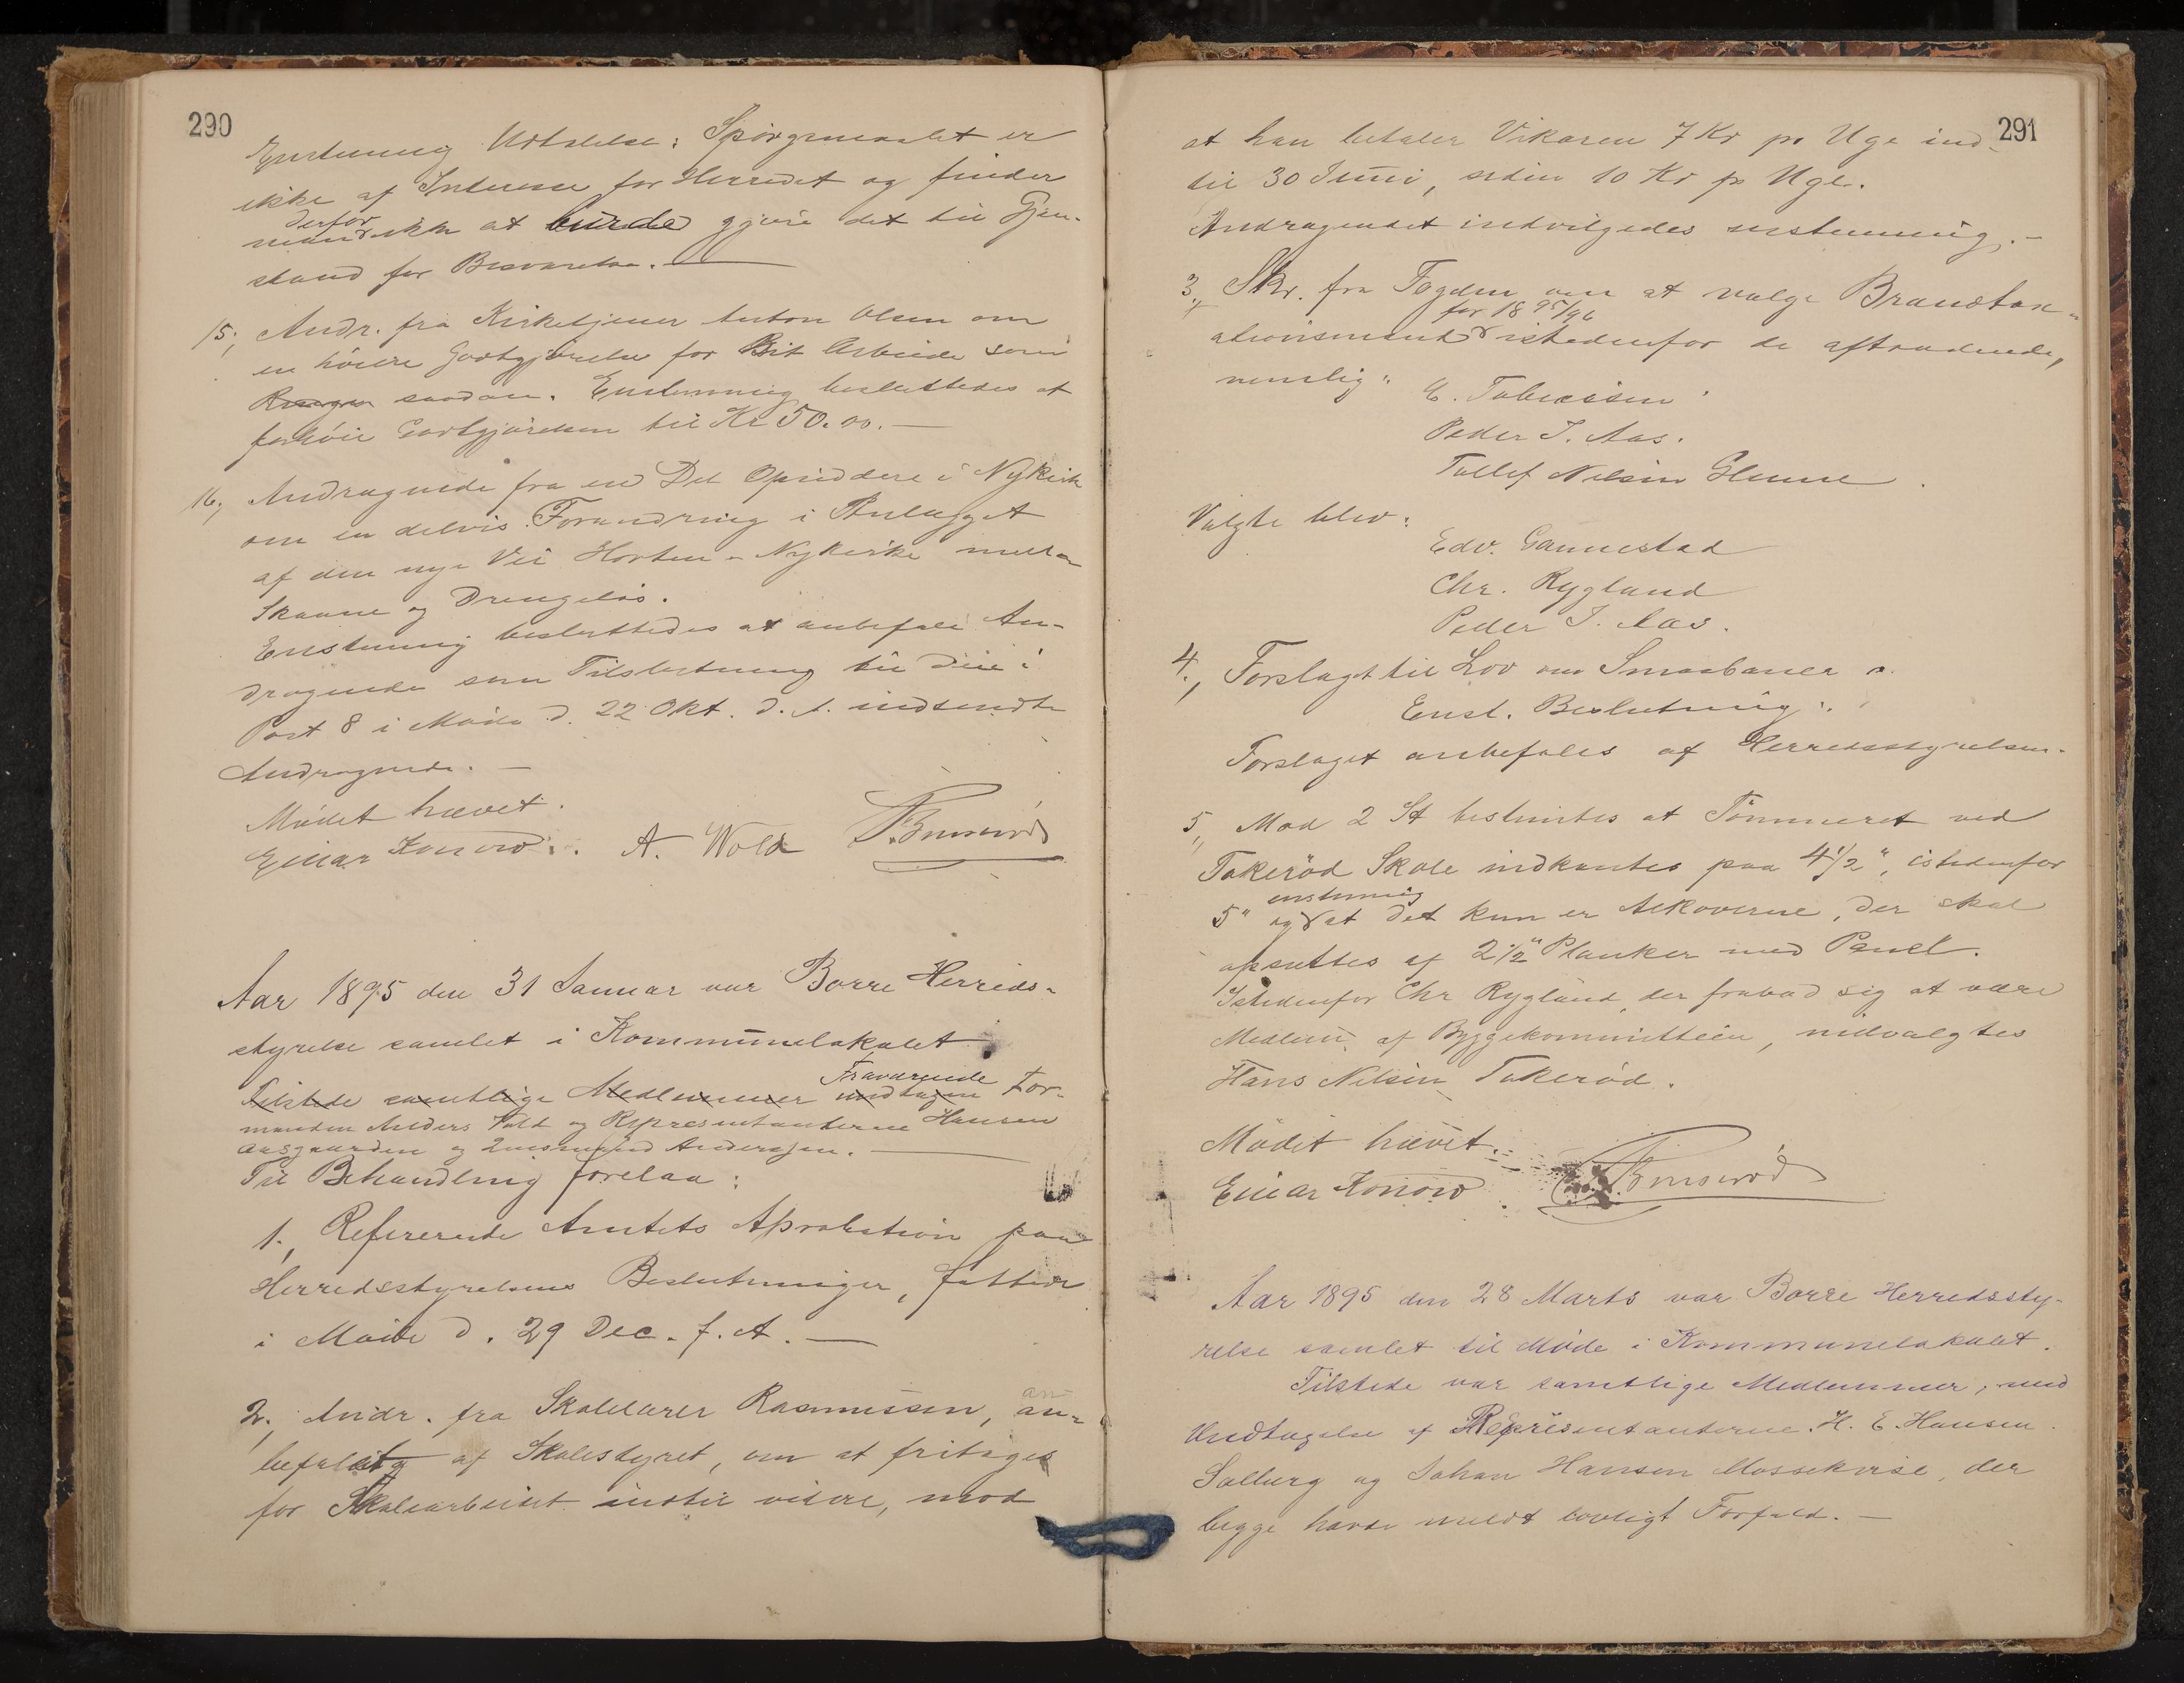 290
Enstemmig Udtalelse: Spørgsmaalet er
ikke af Interesse for Herredet og finder
derfor
man ikke at burde gjøre det til Gjen-
stand for Besvarelse. —
15, Andr. fra Kirketjener Anton Olsen om
en høiere Godtgjørelse for sit Arbeide som
saadan. Enstemmig besluttedes at
forhøie Godtgjørelsen til Kr 50.00. —
16, Andragende fra en Del Opsiddere i Nykirke
om en delvis Forandring i Anlægget
af den nye Vei Horten - Nykirke mellem
Skaane og Drengelös.
Enstemmig besluttedes at anbefale An-
dragende som Tilslutning til det i
Post 8 i Møde d. 22 Okt. d. A. indsendte
Andragende. —
Mødet hævet.
Einar Konow. A. Wold
Aar 1895 den 31 Januar var Borre Herreds-
styrelse samlet i Kommunelokalet.
Fraværende
Tilstede samtlige Medlemmer undtagen For-
manden Anders Vold og Repræsentanterne Hansen
Aasgaarden og Andersen. —
Til Behandling forelaa:
1., Refererede Amtets Aprobation paa
Herredsstyrelsens Beslutninger, fattede
i Møde d. 29 Dec. f. A. —
2., Andr. fra Skolelærer Rasmussen, an-
befalet af Skolestyret, om at fritages
for Skolearbeidet indtil videre, mod
291
at han betaler Vikaren 7 Kr pr Uge ind-
til 30 Juni, siden 10 Kr pr Uge.
Andragendet indvilgedes enstemmig. —
3., Skr. fra Fogden om at vælge Brandtax-
for 1895/96
ationsmænd istedenfor de aftrædende,
nemlig:
E. Tobiassen
Peder J. Aas.
Tollef Nilsen
Valgte blev:
Edv. Gannestad
Chr. Rygland
Peder J. Aas.
4., Forslaget til Lov om Smaabaner
Enst. Beslutning:
Forslaget anbefales af Herredsstyrelsen.
5., Mod 2 St bestemtes at Tømmeret ved
Takerød Skole indkantes paa 4 1/2", istedenfor
enstemmig
5" og at det kun er Alkoverne, der skal
opsættes af 2 1/2" Planker med Panel.
Istedenfor Chr Rygland, der frabad sig at være
Medlem af Byggekommitteen, valgtes
Hans Nilsen Takerød.
Mødet hævet.
Einar Konow
Aar 1895 den 28 Marts var Borre Herredssty-
relse samlet til Møde i Kommunelokalet.
Tilstede var samtlige Medlemmer, med
Undtagelse af Repræsentanterne H. E. Hansen
Solberg og Johan Hansen, der
begge havde meldt lovligt Forfald. —